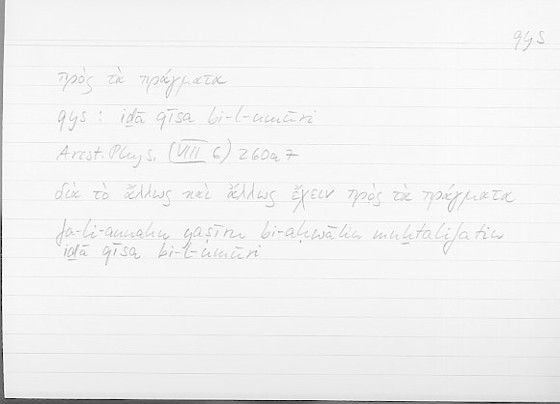 qys
πρὸς τὰ πράγματα
qys : iḏā qīsa bi-l-umūri
Arist. Phys. (VIII 6) 260a7
διὰ τὸ ἄλλως καὶ ἄλλως ἔχειν πρὸς τὰ πράγματα
fa-li-annahu yaṣīru bi-aḥwālin muḫtalifatin
iḏā qīsa bi-l-umūri